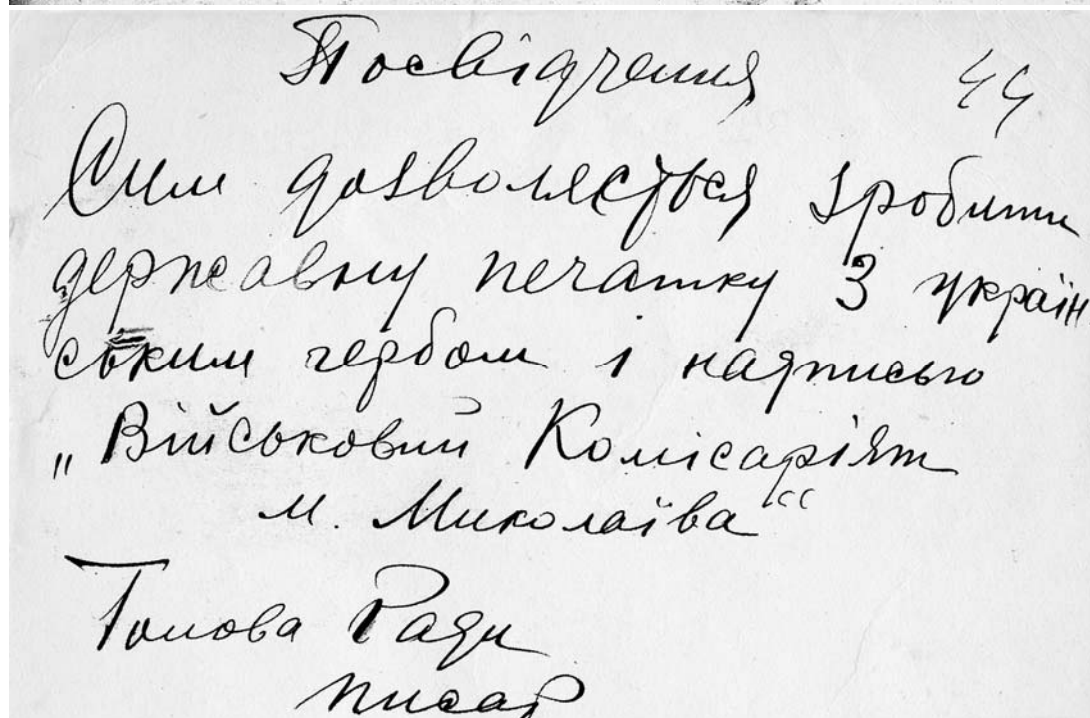 Посвідчення 44
Сим дозволяється зробити
державну печатку з україн
ським гербом і надписью
„Військовий Комісаріят
м. Миколаїва“
Голова Ради
писар